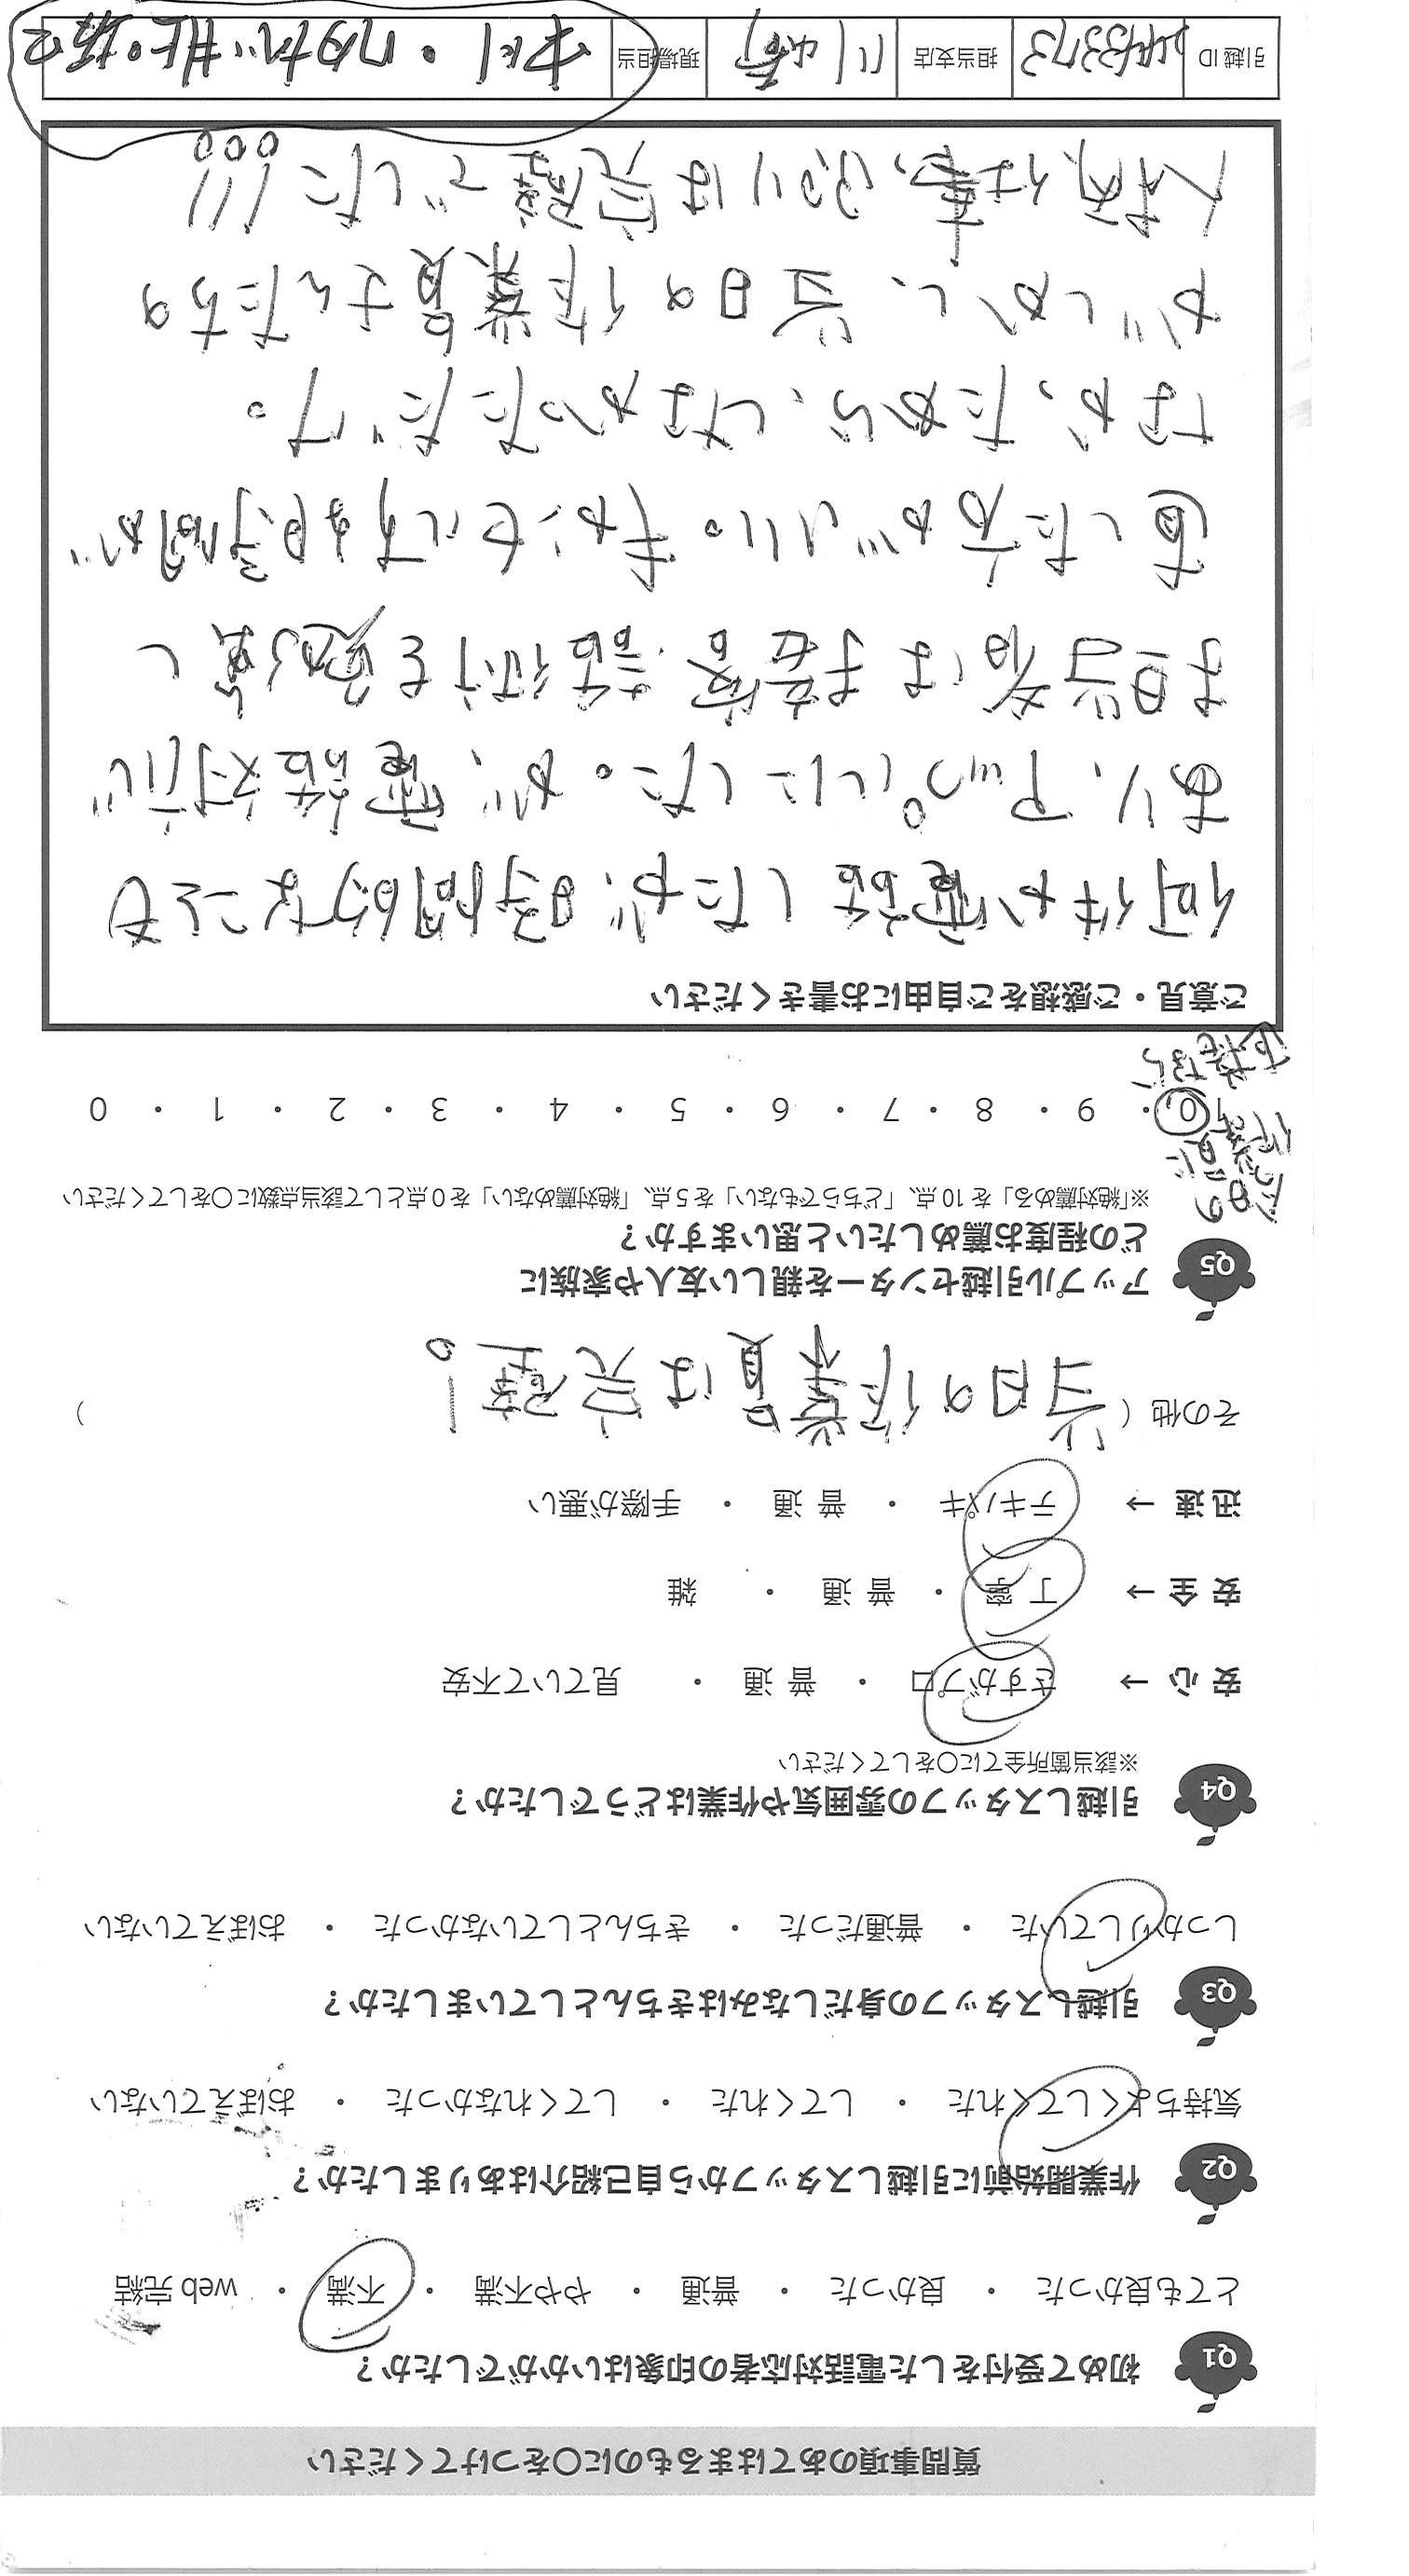 質問事項のあてはまるものに○をつけてください
Q1 初めて受付をした電話対応者の印象はいかがでしたか?
とても良かった ・ 良かった ・ 普通 ・ やや不満 ・ 不満 ・ web完結
Q2 作業開始前に引越しスタッフから自己紹介はありましたか?
気持ちよくしてくれた ・ してくれた ・ してくれなかった ・ おぼえていない
Q3 引越しスタッフの身だしなみはきちんとしていましたか?
しっかりしていた ・ 普通だった ・ きちんとしていなかった ・ おぼえていない
Q4 引越しスタッフの雰囲気や作業はどうでしたか?
※該当箇所全てに○をしてください
安心 → さすがプロ ・ 普通 ・ 見ていて不安
安全 → 丁寧 ・ 普通 ・ 雑
迅速 → テキパキ ・ 普通 ・ 手際が悪い
その他 ( 当日の作業員は完璧! )
Q5 アップル引越センターを親しい友人や家族に
どの程度お薦めしたいと思いますか?
※「絶対薦める」を10点、「どちらでもない」を5点、「絶対薦めない」を0点として該当点数に○をしてください
当日の
作業員に
10 ・ 9 ・ 8 ・ 7 ・ 6 ・ 5 ・ 4 ・ 3 ・ 2 ・ 1 ・ 0
ご意見・ご感想をご自由にお書きください
何件か電話したが、時間的なことも
あり、アップルにした。が、電話対応
担当者は接客、話術を勉強し
直した方がいい。キャンセルする時間が
なかったから、しなかっただけ。
がしかし、当日の作業員さんたちの
人柄、仕事ぶりは完璧でした!!!
引越ID 担当支店 川崎 現場担当